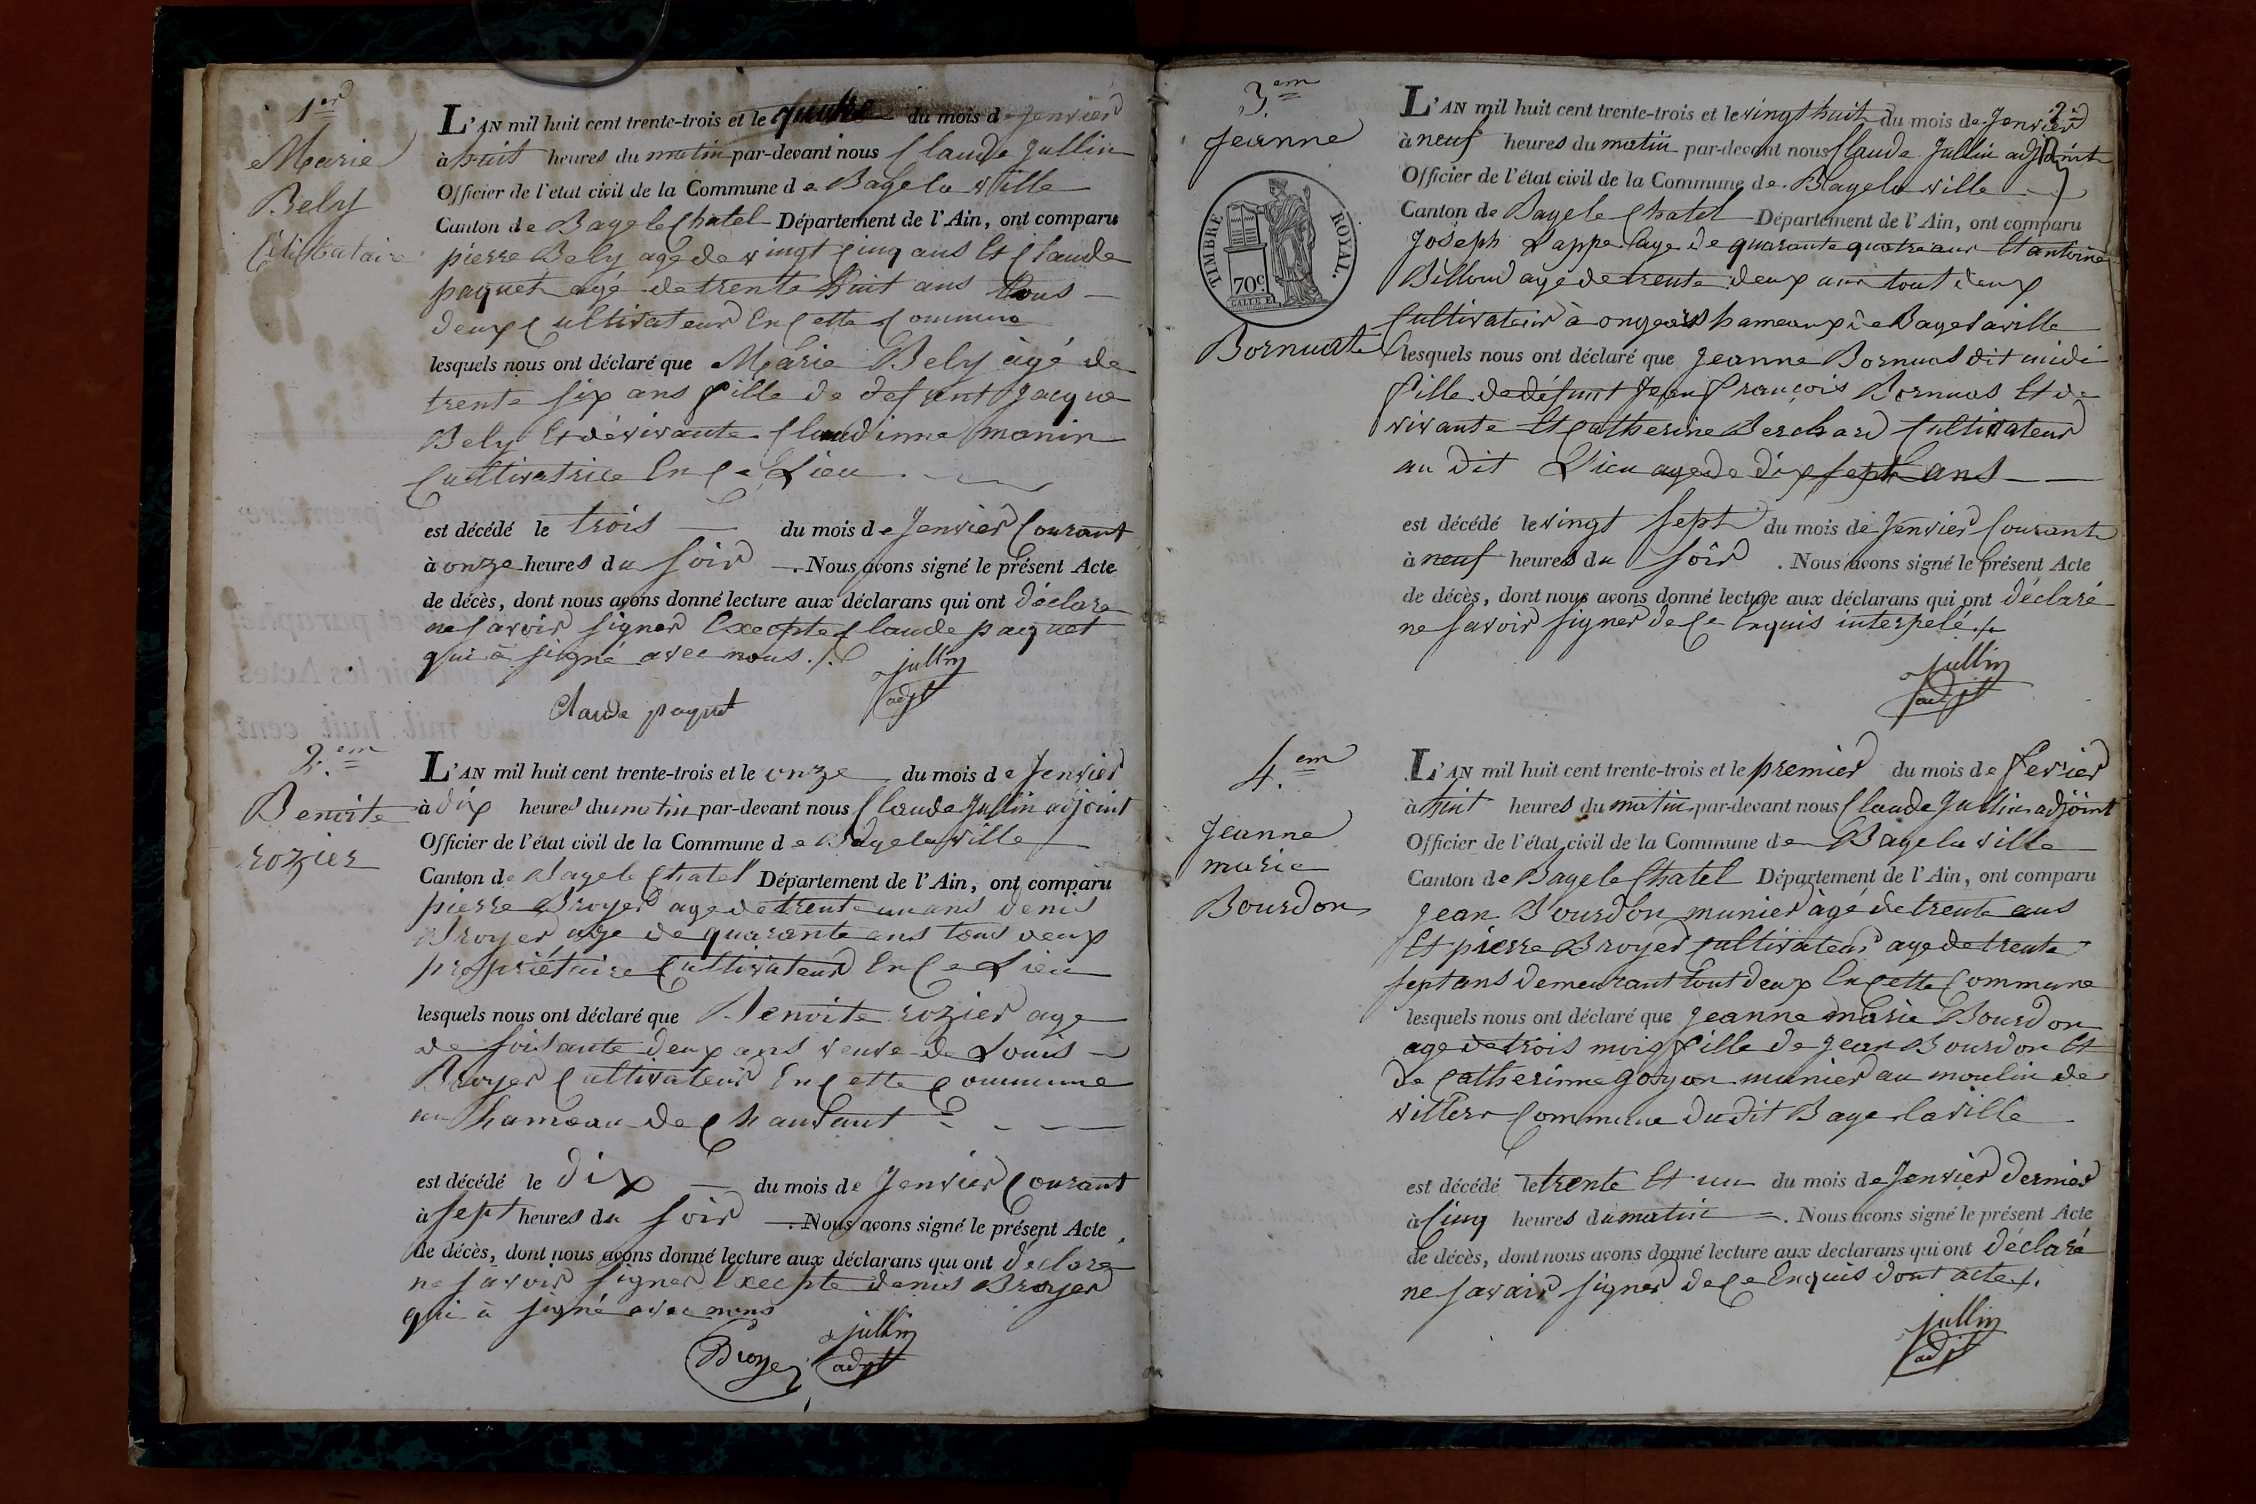 1er
Marie
Bely
Célibataire
L'AN mil huit cent trente-trois et le quatre du mois de Jenvier
à huit heures du matin par-devant nous Claude Jullin
Officier de l'état civil de la Commune de Bage la ville
Canton de Bage le Chatel Département de l'Ain, ont comparu
pierre Bely age de vingt cinq ans Et Claude
paquet agé de trente huit ans tous
deux Cultivateur En Cette Commune
lesquels nous ont déclaré que Marie Bely àgé de
trente six ans fille de defunt Jacque
Bely Et dévivante Claudinne manin
Cultivatrice En Ce Lieu
est décédé le trois du mois de Jenvier Courant
à onze heures du soir . Nous avons signé le présent Acte
de décès, dont nous avons donné lecture aux déclarans qui ont déclaré
ne savoir signer Excepte Claude paquet
qui à signé avec nous ./.
jullin
adjt
Claude paquet
2.em
Benoite
rozier
L'AN mil huit cent trente-trois et le onze du mois de Jenvier
à dix heures du matin par-devant nous Claude Jullin adjoint
Officier de l'état civil de la Commune de Bage la ville
Canton de Bage le Chatel Département de l'Ain, ont comparu
pierre Broyer age de trente un ans denis
Broyer age de quarante ans tous deux
propriétaire Cultivateur En Ce Lieu
lesquels nous ont déclaré que Benoite rozier age
de soisante deux ans veuve de Louis
Broyer Cultivateur En Cette Commune
au hameau de
est décédé le dix du mois de Jenvier Courant
à sept heures du soir . Nous avons signé le présent Acte
de décès, dont nous avons donné lecture aux déclarans qui ont déclaré
ne savoir signer Excepte denis Broyer
qui à signé avec nous
Broyer
jullin
adjt
3.em
Jeanne
TIMBRE ROYAL.
70c.
Bornuat
2
L'AN mil huit cent trente-trois et le vingt huit du mois de Jenvier
à neuf heures du matin par-devant nous Claude Jullin adjoint
Officier de l'état civil de la Commune de Bage la ville
Canton de Bage le Chatel Département de l'Ain, ont comparu
Joseph age de quarante quatre ans Et antoine
Billoud age de trente deux ans tout deux
Cultivateur à hameaux de Bage la ville
lesquels nous ont déclaré que Jeanne Bornuas dit midi
fille de défunt Jean François Bornuas Et de
vivante Et Catherine Berchard Cultivateur
au dit Lieu age de dix sept ans
est décédé le vingt sept du mois de Jenvier Courant
à neuf heures du soir . Nous avons signé le présent Acte
de décès, dont nous avons donné lecture aux déclarans qui ont déclaré
ne savoir signer de Ce Enquis interpelé
jullin
adjt
4.em
Jeanne
marie
Bourdon
L'AN mil huit cent trente-trois et le premier du mois de fevrier
à huit heures du matin par-devant nous Claude Jullin adjoint
Officier de l'état civil de la Commune de Bage la ville
Canton de Bage le Chatel Département de l'Ain, ont comparu
Jean Bourdon munier àgé de trente ans
Et pierre Broyer Cultivateur age de trente
sept ans demeurant tout deux En Cette Commune
lesquels nous ont déclaré que Jeanne marie Bourdon
age de trois mois fille de Jean Bourdon Et
de Catherinne goyon munier au moulin de
Commune du dit Bage la ville
est décédé le trente Et un du mois de Jenvier dernier
à Cinq heures du matin . Nous avons signé le présent Acte
de décès, dont nous avons donné lecture aux declarans qui ont déclaré
ne savoir signer de Ce Enquis dont acte
jullin
adjt